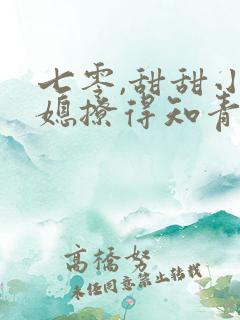 七零,甜甜小
媳撩得知青
高橋努
未经同意禁止转载